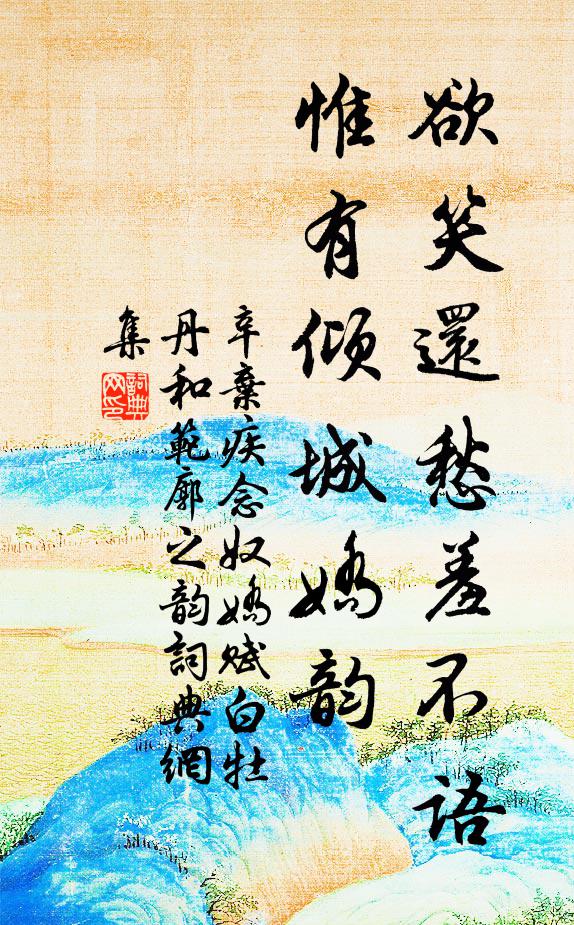 欲笑還愁羞不語
惟有傾城嬌韵
辛棄疾念奴嬌賦白牡
丹和範廓之韵詞典網
集
詞典
网印